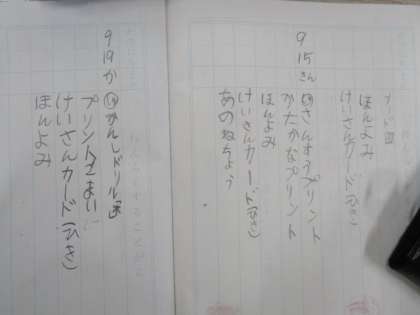 ほんよみ
けいさんカード(ひき)
9 15 きん
さんすうプリント
かたかなプリント
ほんよみ
けいさんカード(ひき)
あのねちょう
9 19 か
かんじドリル
プリント2まい
けいさんカード(ひき)
ほんよみ